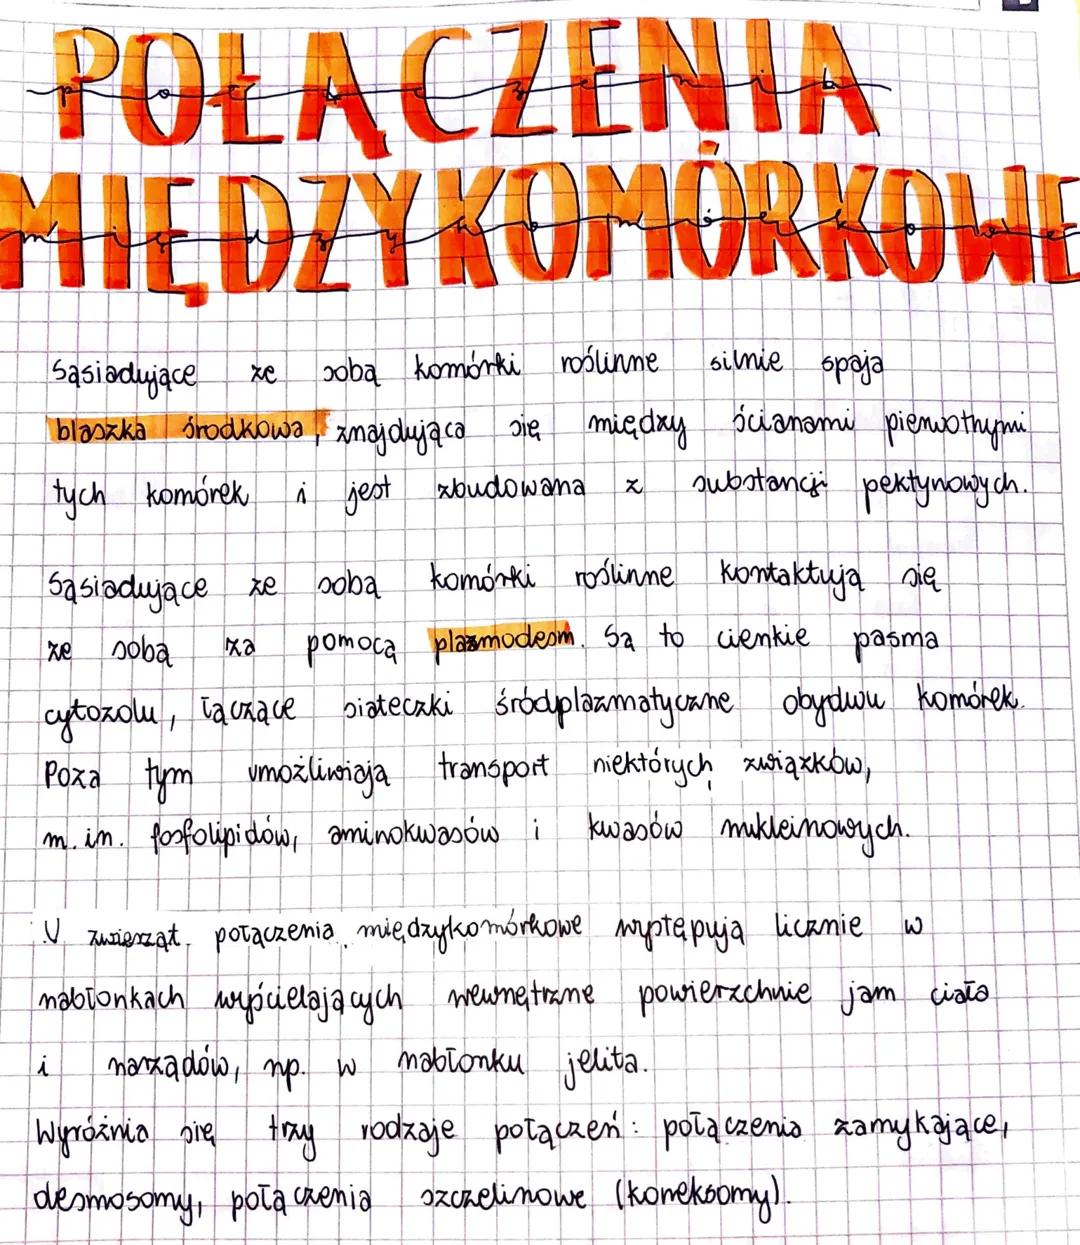 POŁĄCZENIA
połączenia
MIĘDZYKOMÓRKOWE
międzykomórkowe
Sąsiadujące ze sobą komórki roślinne silnie spaja
blaszka środkowa, znajdująca się między ścianami pierwotnymi
tych komórek i jest zbudowana z substancji pektynowych.
Sąsiadujące ze sobą komórki roślinne kontaktują się
ze sobą za pomocą plazmodesm. Są to cienkie pasma
cytozolu, łączące siateczki śródplazmatyczne obydwu komórek.
Poza tym umożliwiają transport niektórych związków,
m.in. fosfolipidów, aminokwasów i kwasów nukleinowych.
U zwierząt połączenia międzykomórkowe występują licznie w
nabłonkach wyścielających wewnętrzne powierzchnie jam ciała
i narządów, np. w nabłonku jelita.
Wyróżnia się trzy rodzaje połączeń: połączenia zamykające,
desmosomy, połączenia szczelinowe (koneksomy).